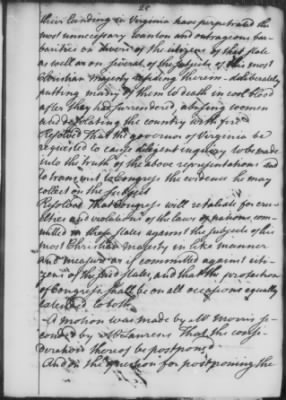 20
their landing in Virginia have perpetrated the
most unnecessary wanton and outrageous bar-
barities on divers of the citizens of that State
as well as on several of the subjects of his most
Christian Majesty residing therein deliberately
putting many of them to death in cool blood
after they had surrendered, abusing women
and desolating the country with fire
Resolved That the governor of Virginia be
requested to cause diligent enquiry to be made
into the truth of the above representations and
to transmit to Congress the evidence he may
collect on the subject
Resolved That Congress will retaliate for cru-
elties and violations of the laws of nations com-
mitted in these states against the subjects of his
most Christian Majesty in like manner
and measure as if committed against citi-
zens of the said states, and that the protection
of Congress shall be on all occasions equally
extended to both
A motion was made by Mr Morris se-
conded by Mr Laurens That the consi-
deration thereof be postponed
And on the question for postponing the